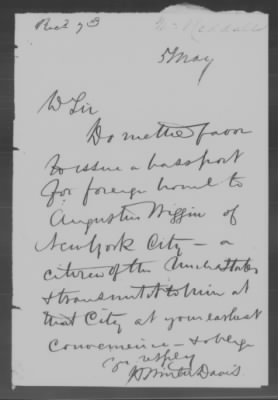 Recd 7th
5 May
D Sir
Do me the favor
to issue a passport
for foreign travel to
Augustus Wiggin of
New York City - a
citizen of the United States
& transmit it to him at
that City at your earliest
convenience - & oblige
yr resply
H Winter Davis